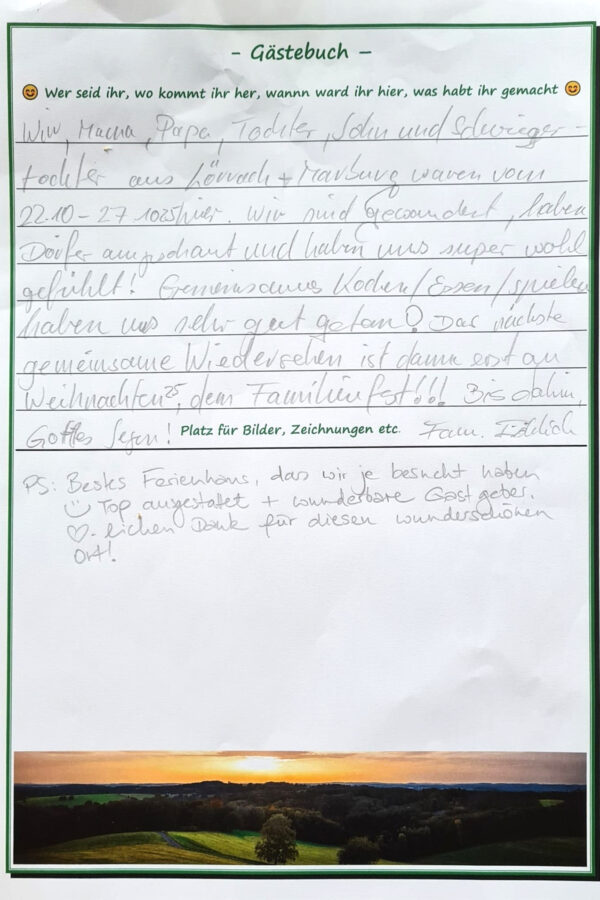 - Gästebuch -
Wer seid ihr, wo kommt ihr her, wannn ward ihr hier, was habt ihr gemacht
Wir, Mama, Papa, Tochter, Sohn und Schwieger-
tochter aus Lörrach + Marburg waren vom
22.10 - 27.1025 hier. Wir sind gewandert, haben
Dörfer angeschaut und haben uns super wohl
gefühlt! Gemeinsames Kochen/Essen/spielen
haben uns sehr gut getan! Das nächste
gemeinsame Wiedersehen ist dann erst an
Weihnachten 25, dem Familienfest!!! Bis dahin,
Gottes Segen! Fam.
Platz für Bilder, Zeichnungen etc.
PS: Bestes Ferienhaus, das wir je besucht haben
☺ Top ausgestattet + wunderbare Gastgeber.
♡-lichen Dank für diesen wunderschönen
Ort!